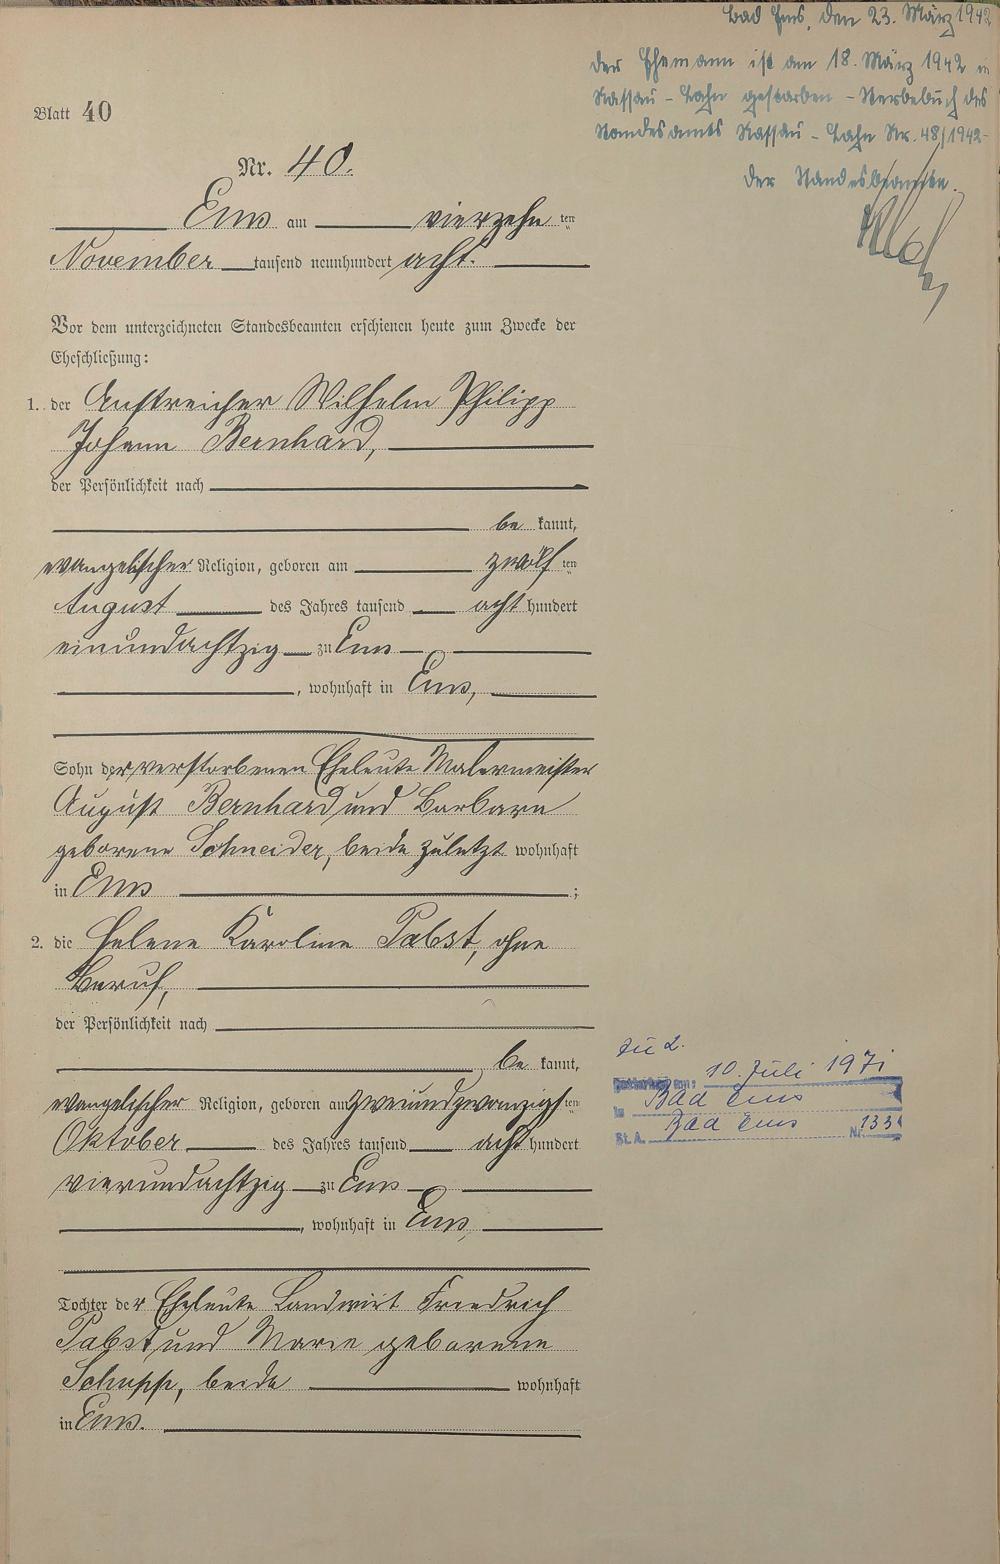 Bad Ems, den 23. März 1942
Der Ehemann ist am 18. März 1942 in
Nassau-Lahn gestorben - Sterbebuch des
Standesamts Nassau-Lahn Nr. 48/1942-
Der Standesbeamte.
Blatt 40
Nr. 40.
Ems am vierzehn ten
November tausend neunhundert acht.
Vor dem unterzeichneten Standesbeamten erschienen heute zum Zwecke der
Eheschließung:
1. der Anstreicher Wilhelm Philipp
Johann Bernhard,
der Persönlichkeit nach
be kannt,
evangelischer Religion, geboren am zwölf ten
August des Jahres tausend acht hundert
einundachtzig zu Ems
, wohnhaft in Ems,
Sohn der verstorbenen Eheleute Malermeister
August Bernhard und Barbara
geborene Schneider, beide zuletzt wohnhaft
in Ems ;
2. die Helene Karoline Pabst, ohne
Beruf,
der Persönlichkeit nach
be kannt,
evangelischer Religion, geboren am zweiundzwanzigs ten
Oktober des Jahres tausend acht hundert
vierundachtzig zu Ems
, wohnhaft in Ems,
Tochter der Eheleute Landwirt Friedrich
Pabst und Marie geborene
Schupp, beide wohnhaft
in Ems.
Zu 2.
am: 10. Juli 1971
in Bad Ems
St. A. Bad Ems Nr. 133